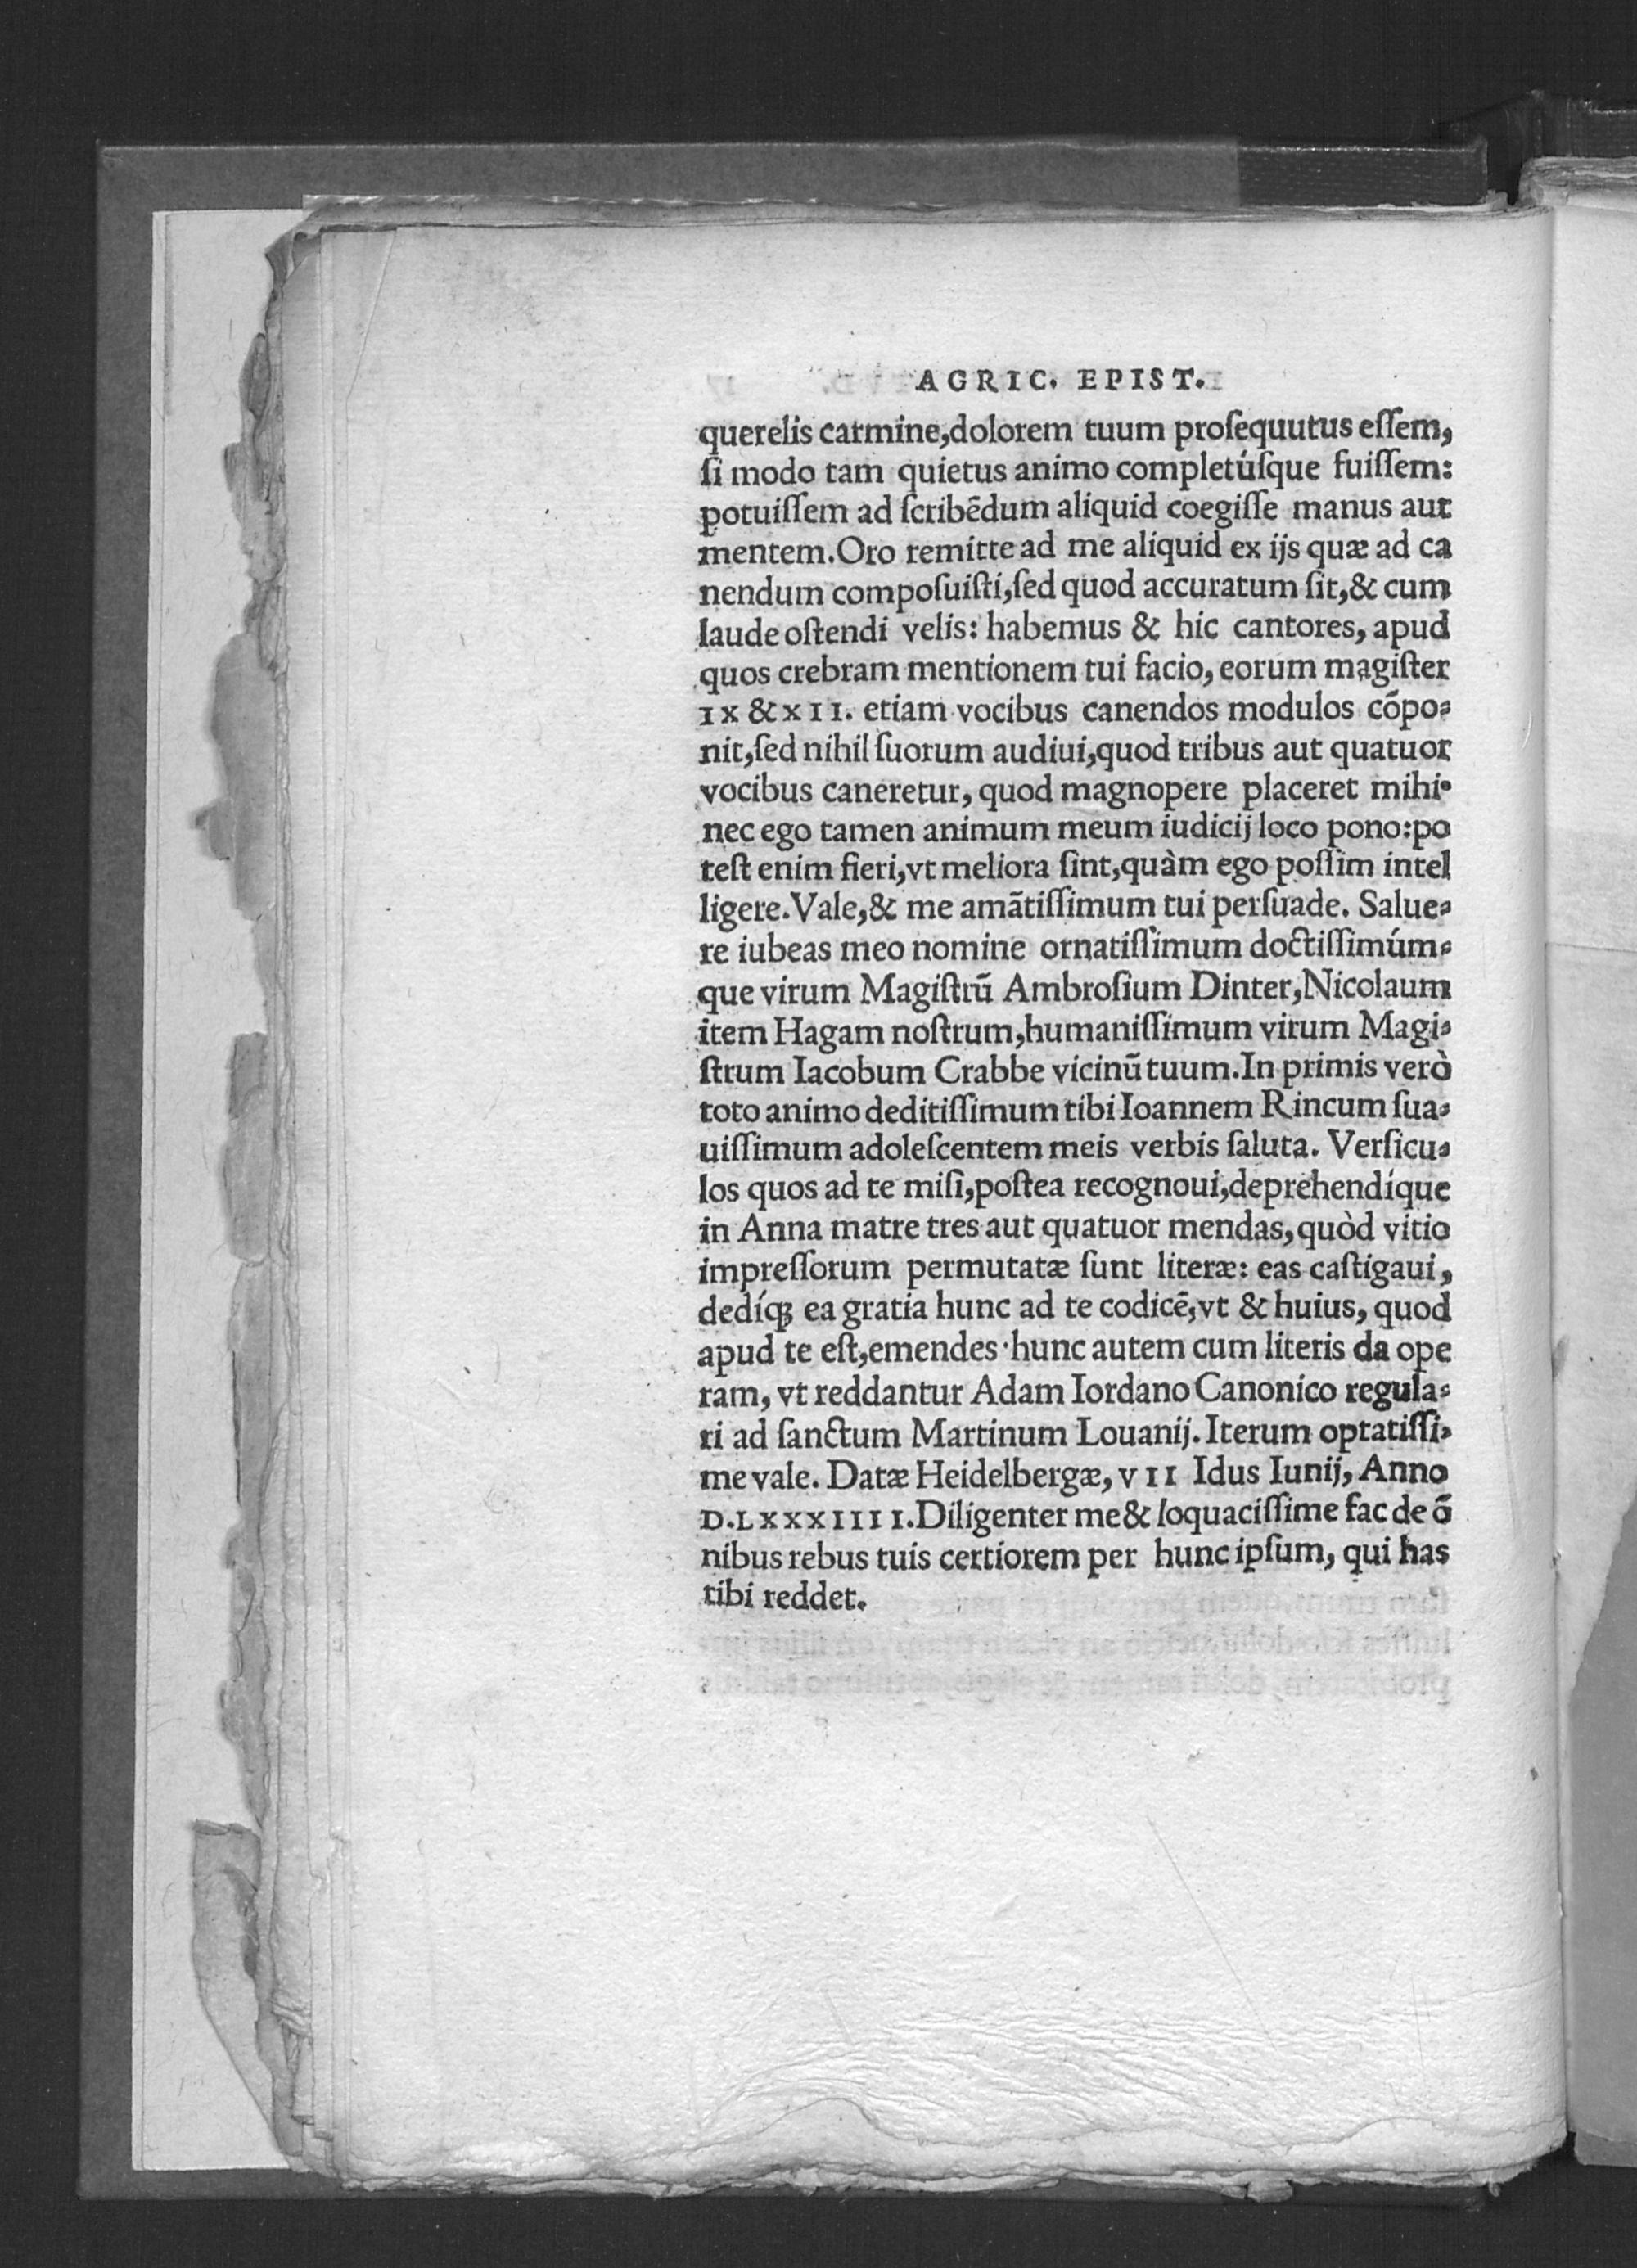 AGRIC. EPIST.
querelis carmine,dolorem tuum proſequutus eſſem,
ſi modo tam quietus animo completúſque fuiſſem:
potuiſſem ad ſcribēdum aliquid coegiſſe manus aut
mentem.Oro remitte ad me aliquid ex ijs quæ ad ca
nendum compoſuiſti,ſed quod accuratum ſit,& cum
laude oſtendi velis: habemus & hic cantores, apud
quos crebram mentionem tui facio, eorum magiſter
IX & XII. etiam vocibus canendos modulos cōpo⸗
nit,ſed nihil ſuorum audiui,quod tribus aut quatuor
vocibus caneretur, quod magnopere placeret mihi•
nec ego tamen animum meum iudicij loco pono:po
teſt enim fieri,vt meliora ſint,quàm ego poſſim intel
ligere.Vale,& me amātiſſimum tui perſuade. Salue⸗
re iubeas meo nomine ornatiſſimum doctiſſimúm⸗
que virum Magiſtrū Ambroſium Dinter,Nicolaum
item Hagam noſtrum,humaniſſimum virum Magi⸗
ſtrum Iacobum Crabbe vicinū tuum.In primis verò
toto animo deditiſſimum tibi Ioannem Rincum ſua⸗
uiſſimum adoleſcentem meis verbis ſaluta. Verſicu⸗
los quos ad te miſi,poſtea recognoui,deprehendíque
in Anna matre tres aut quatuor mendas,quòd vitio
impreſſorum permutatæ ſunt literæ: eas caſtigaui,
dedíqꝫ ea gratia hunc ad te codicē,vt & huius, quod
apud te eſt,emendes·hunc autem cum literis da ope
ram, vt reddantur Adam Iordano Canonico regula⸗
ri ad ſanctum Martinum Louanij.Iterum optatiſſi⸗
me vale. Datæ Heidelbergæ, VII Idus Iunij, Anno
D.LXXXIIII.Diligenter me & loquaciſſime fac de ō
nibus rebus tuis certiorem per hunc ipſum, qui has
tibi reddet.